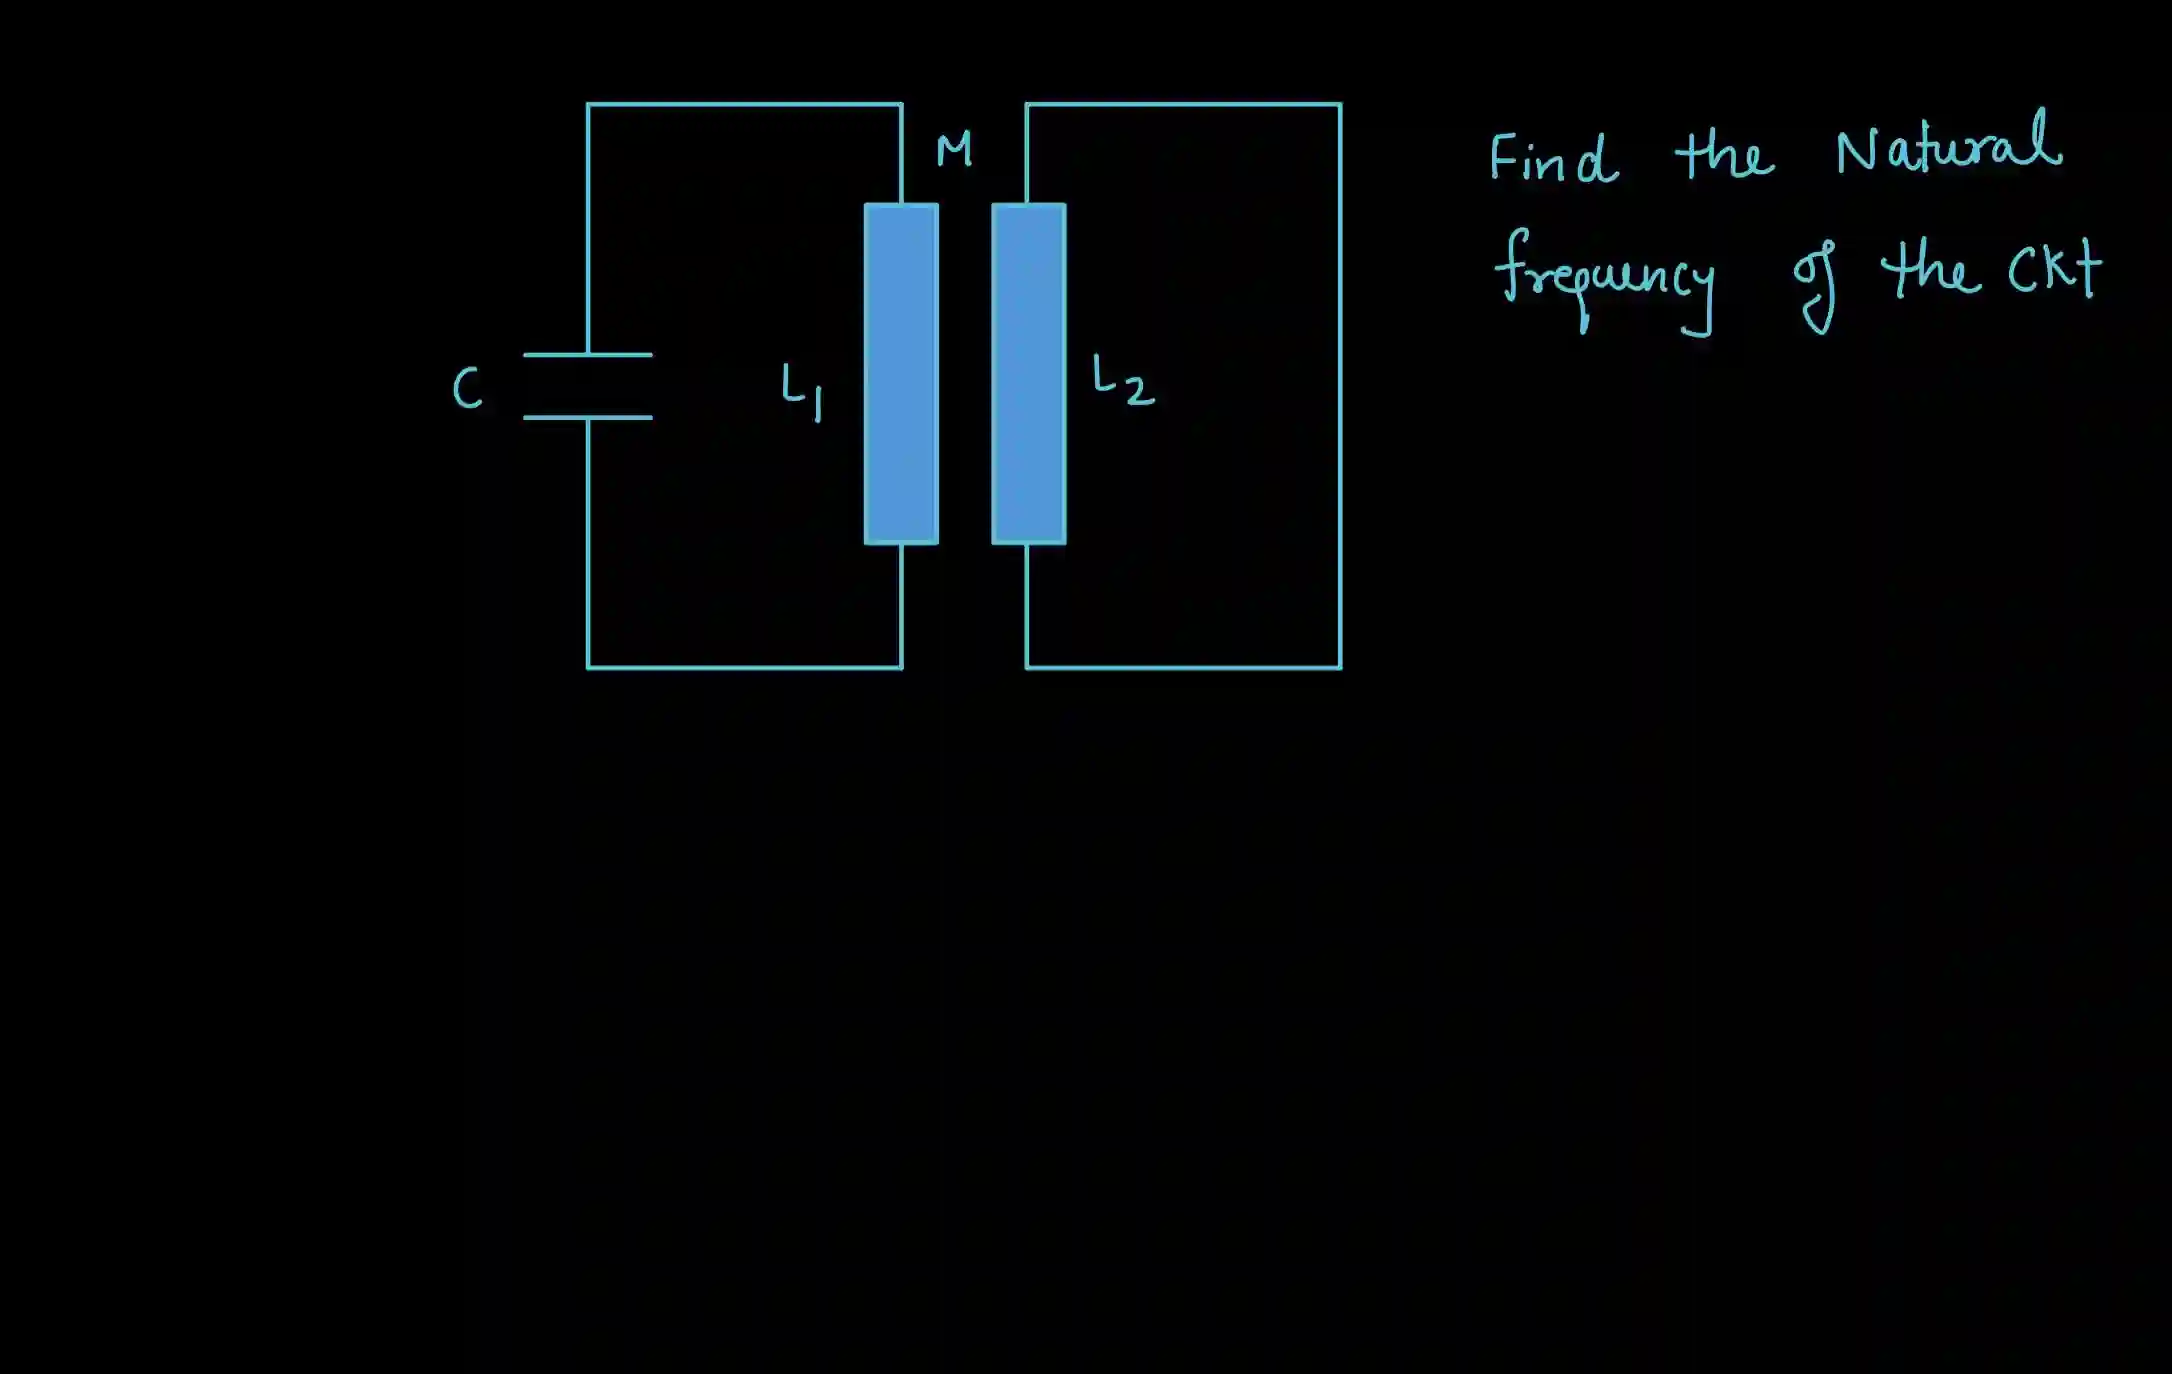 M
C
L1
L2
Find the Natural
frequency of the Ckt